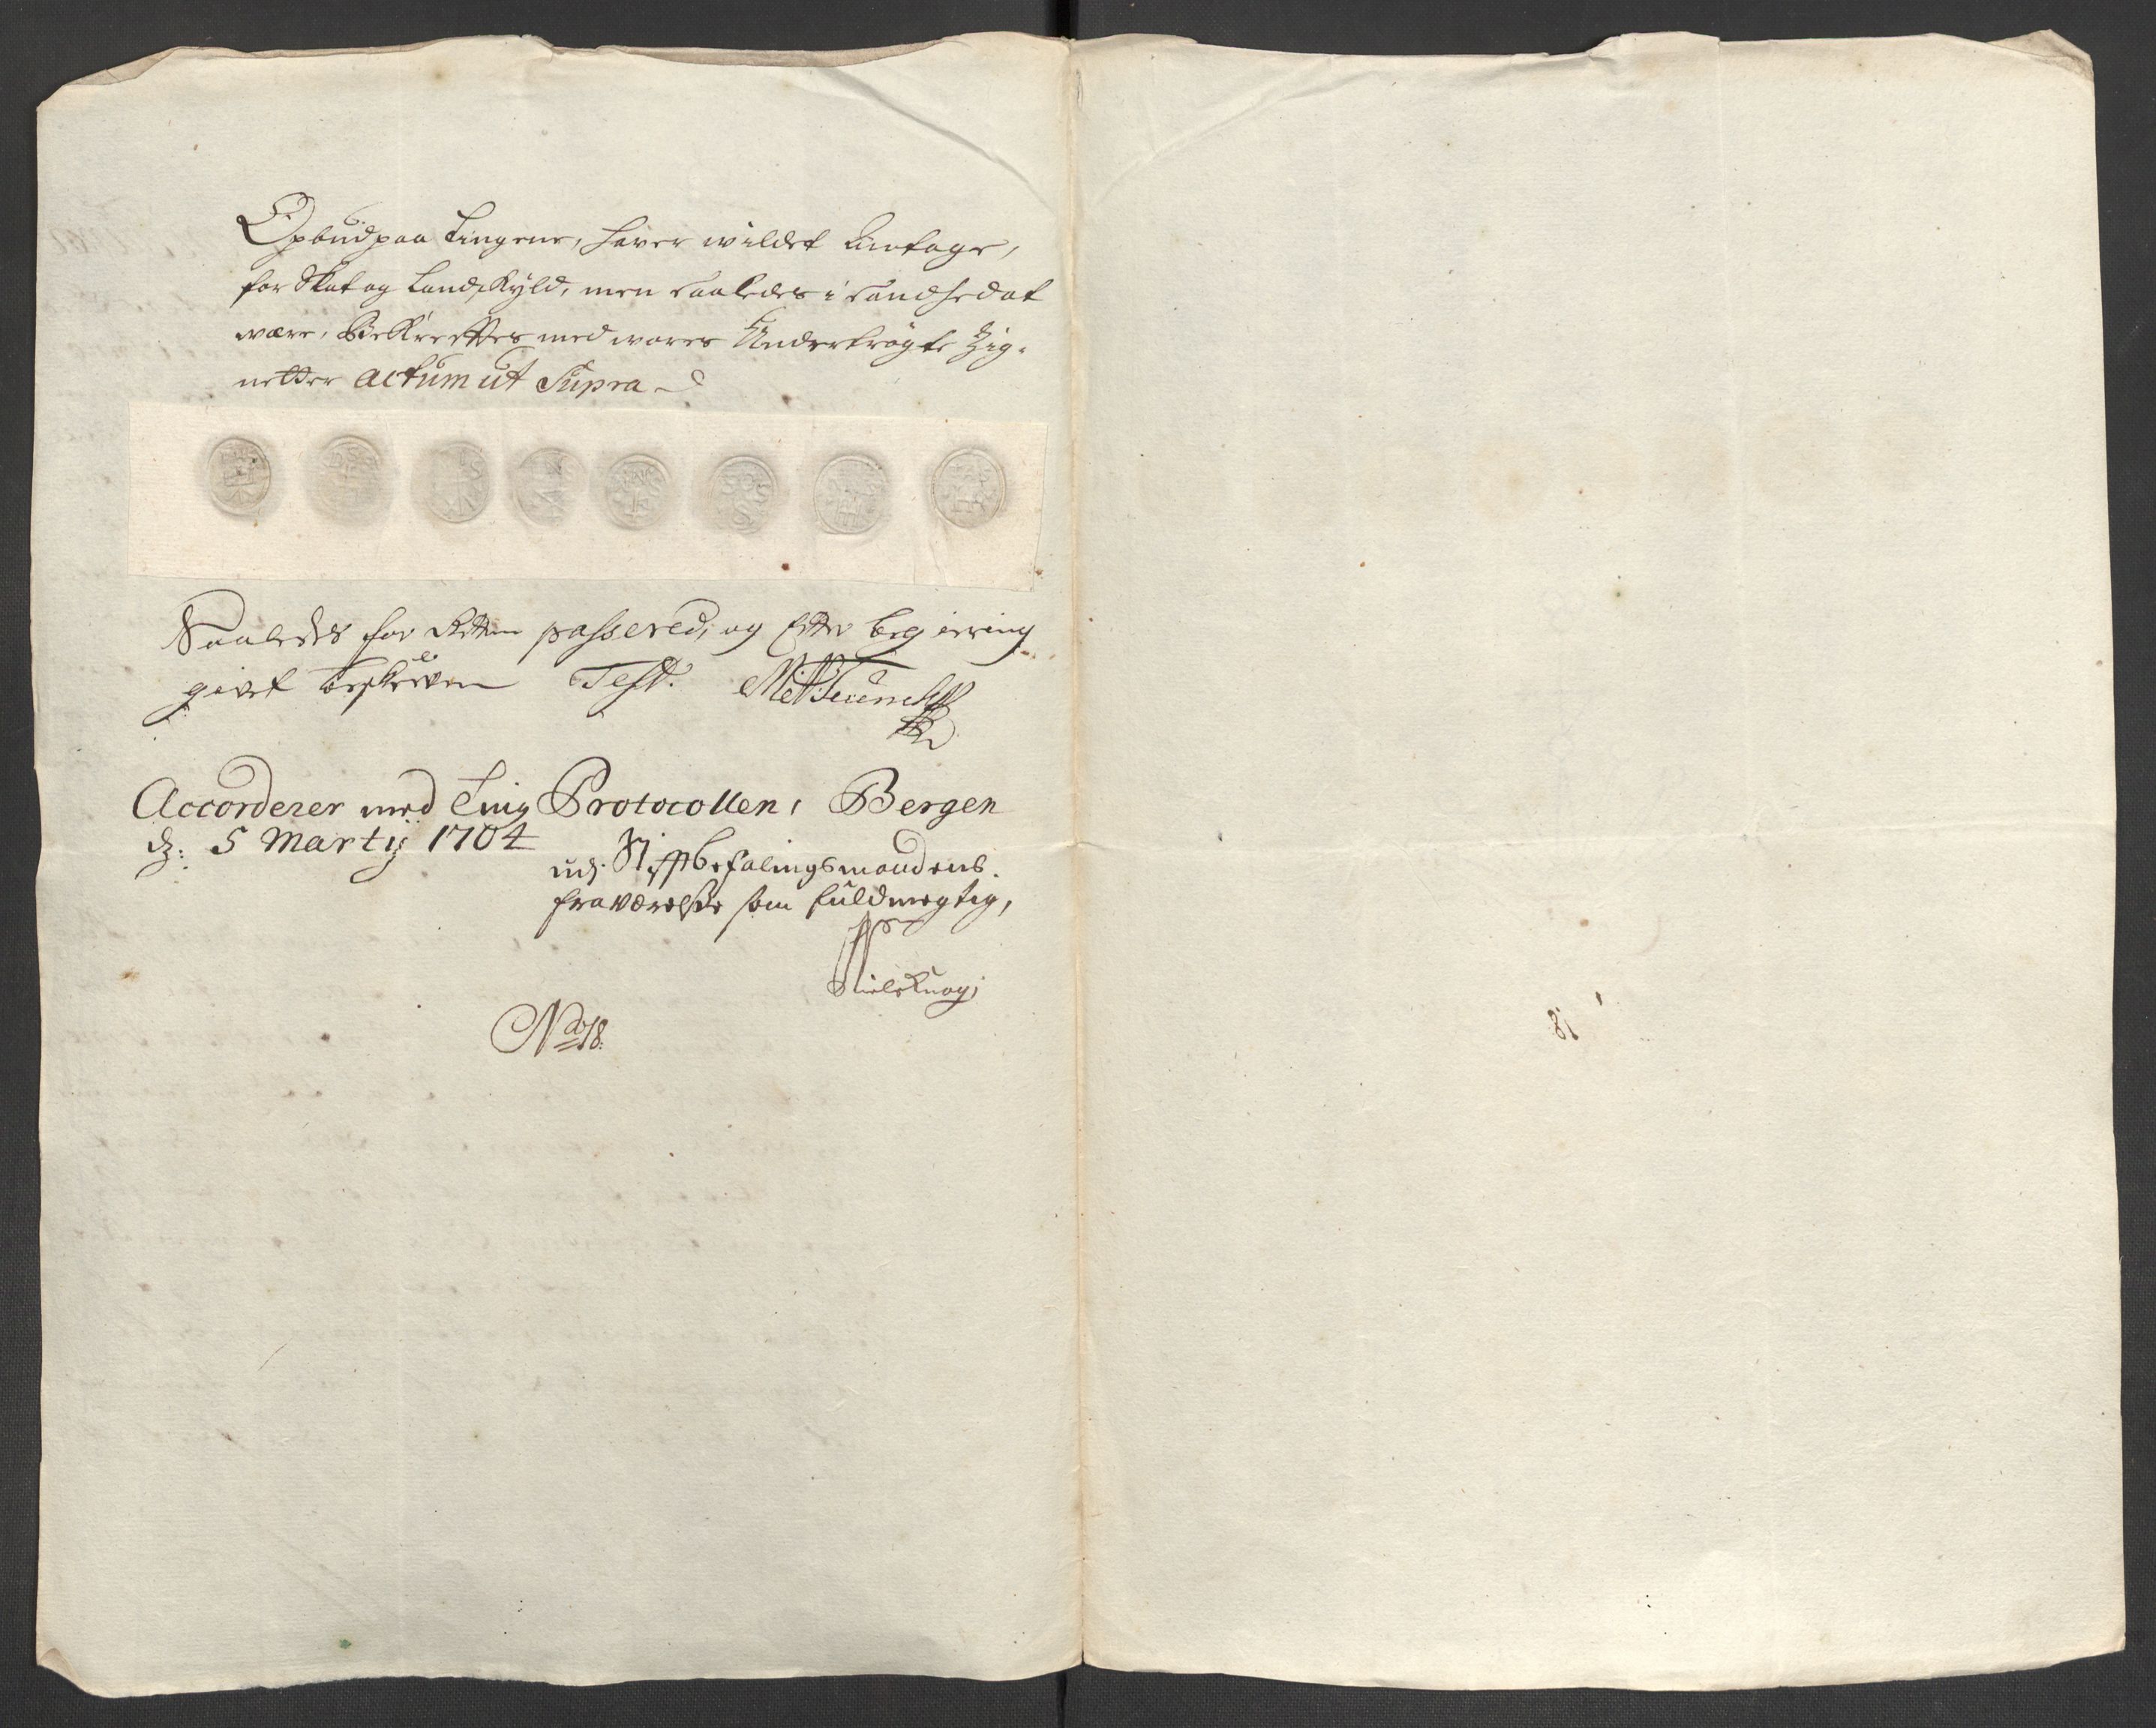 Opbud paa tingene, haver wildet Antage,
for Skat og Landskyld, men saaledes i sandhed at
være, Bekræfftes med worес Undertrögte Zig-
netter actum ut Supra
Saaledes for Retten passered, og Efter begiering
givet beskreven Test.
Accorderer med Ting Protocollen, Bergen
d. 5 Martij 1704
udj Stiftbefalingsmandens
fraværelse som fuldmegtig,
Niels Knag
No 18.
18